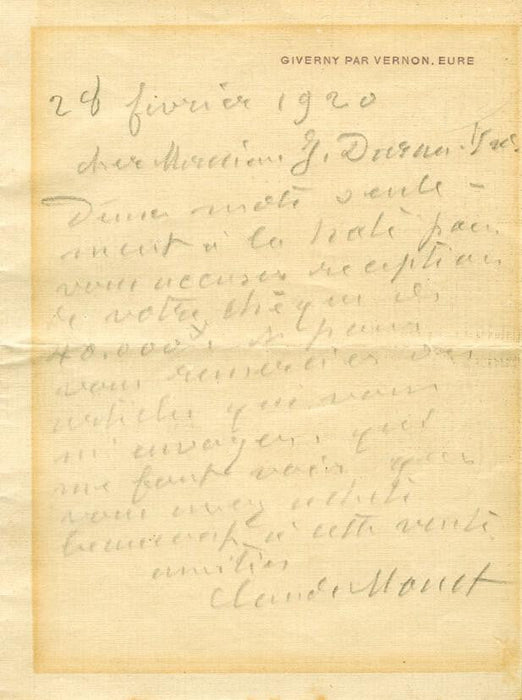 GIVERNY PAR VERNON. EURE
28 février 1920
cher Monsieur G. Durand-Ruel
Deux mots seule-
ment à la hâte pour
vous accuser reception
de votre chèque de
40.000 f et pour
vous remercier des
articles que vous
m'envoyez, qui
me font voir que
vous avez acheté
beaucoup à cette vente
amitiés
Claude Monet